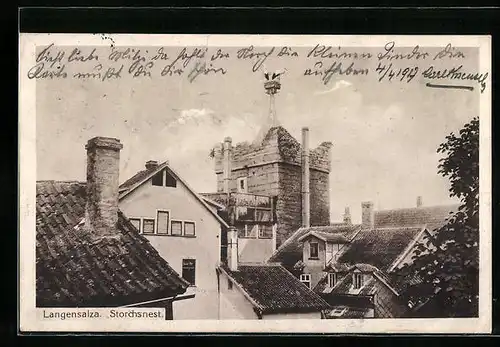 Sieht liebe Mitzi da holt der Storch die kleinen Kinder die
Karte mußt Du Dir schön aufheben 4/4 1917
Langensalza. Storchsnest.